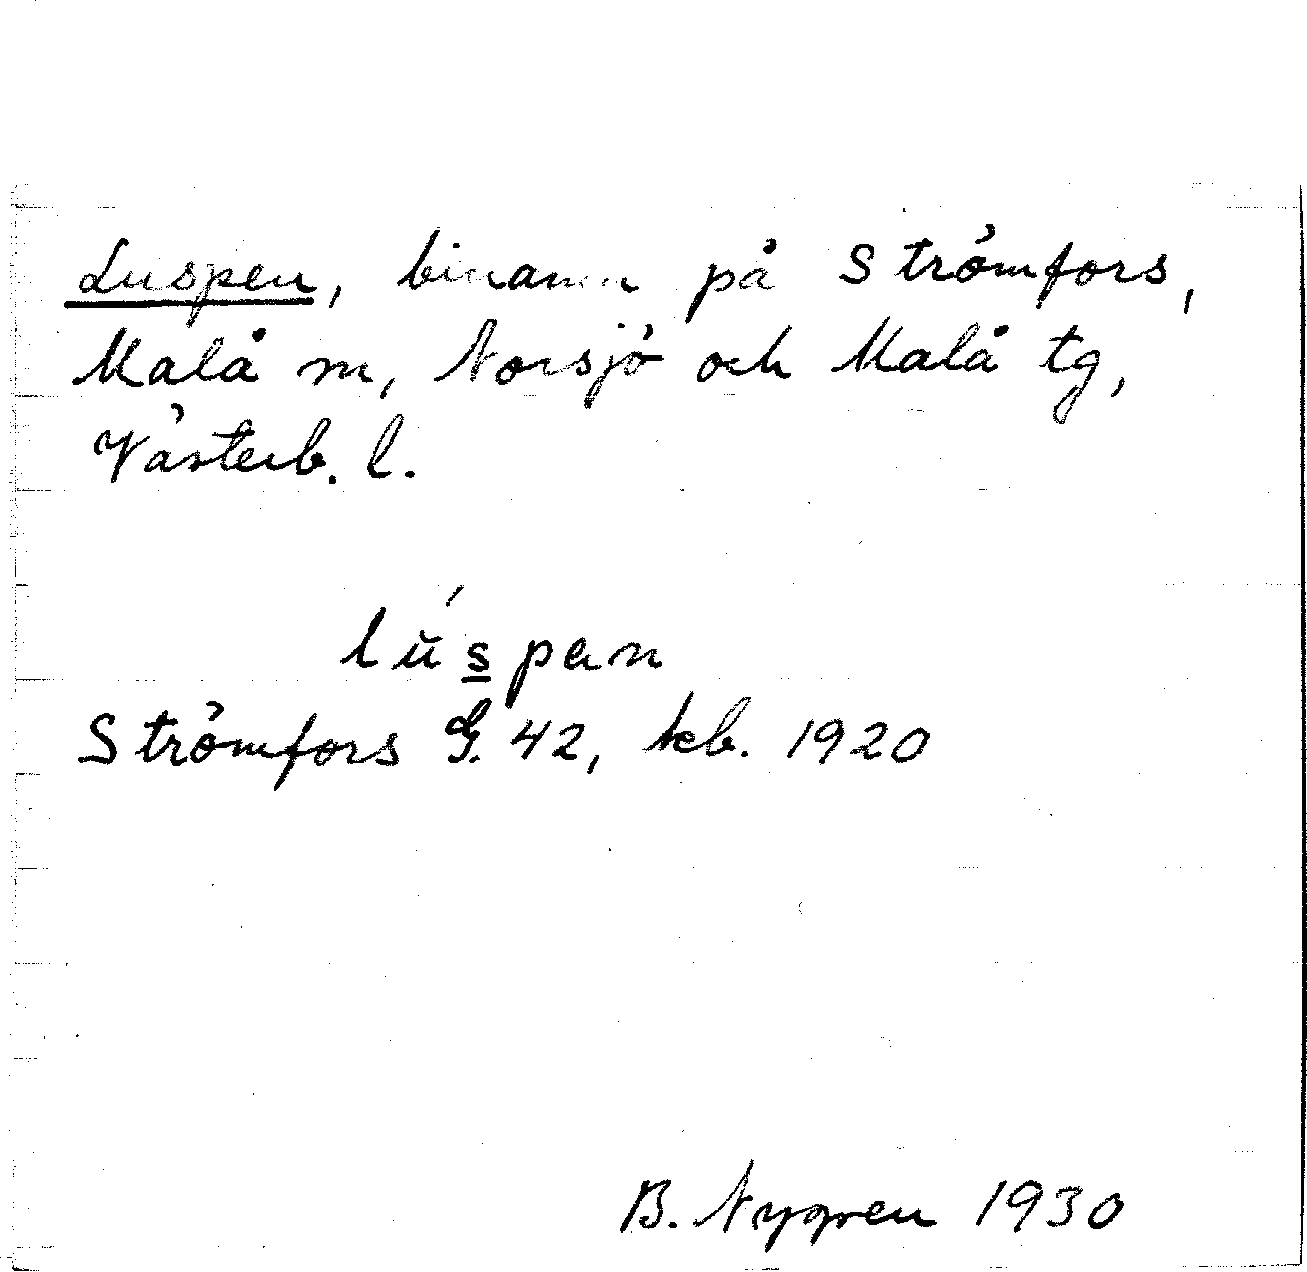 Luspen, binamn på Strömfors,
Malå m, Norsjö och Malå tg,
Västerb. l.
lŭ́span
Strömfors G. 42, keb. 1920
B. Nygren 1930